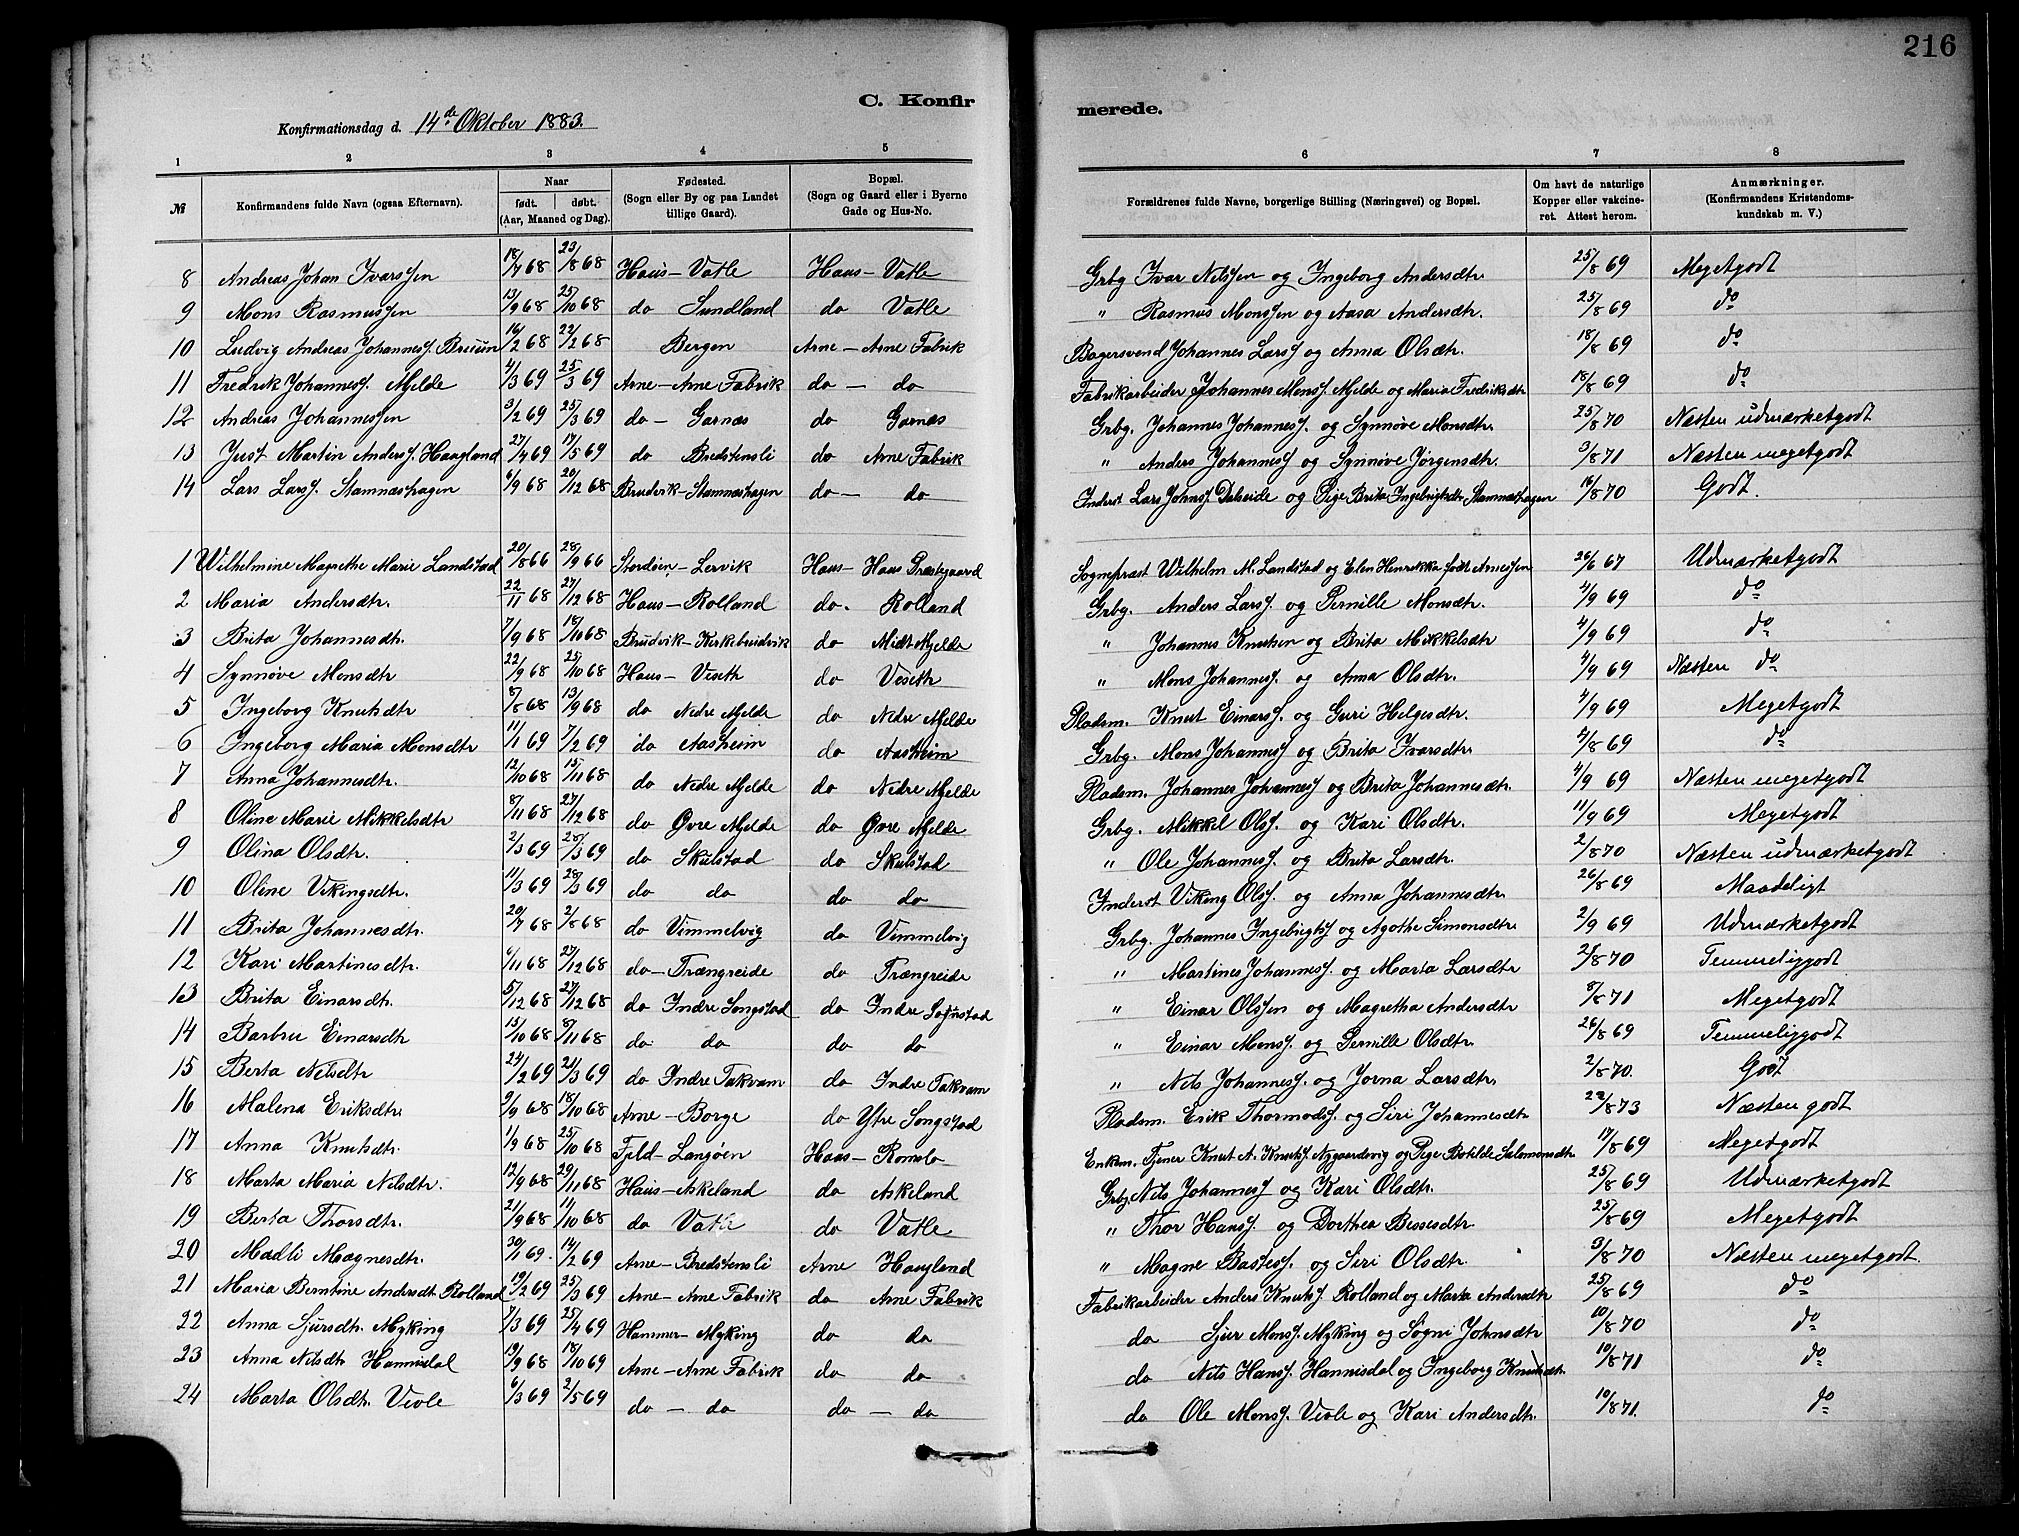 216
C. Konfirmerede.
Konfirmationsdag d. 14de Oktober 1883.
1 2 3 4 5 6 7 8
№ | Konfirmandens fulde Navn (ogsaa Efternavn). | Naar født. døbt. (Aar, Maaned og Dag). | Fødested. (Sogn eller By og paa Landet tillige Gaard). | Bopæl. (Sogn og Gaard eller i Byerne Gade og Hus-No. | Forældrenes fulde Navne, borgerlige Stilling (Næringsvei) og Bopæl. | Om havt de naturlige Kopper eller vakcineret. Attest herom. | Anmærkninger. (Konfirmandens Kristendomskundskab m. V.)
8 Andreas Johan Ivarssen 18/7 68 23/8 68 Haus – Vatle Haus – Vatle Grbg Ivar Nilssen og Ingeborg Andersdtr 25/8 69 Megetgodt
9 Mons Rasmussen 13/9 68 25/10 68 do Sundland do Vatle " Rasmus Monssen og Aasa Andersdtr. 25/8 69 do
10 Ludvig Andreas Johanness. Bruun 16/2 68 22/2 68 Bergen Arne – Arne Fabrik Bagersvend Johannes Larss. og Anna Olsdtr. 18/8 69 do
11 Fredrik Johanness. Mjelde 4/3 69 25/3 69 Arne – Arne Fabrik do – do Fabrikarbeider Johannes Monss. Mjelde og Maria Fredriksdtr 18/8 69 do
12 Andreas Johannessen 3/2 69 25/3 69 do – Garnæs do Garnæs Grbg. Johannes Johanness. og Synnøve Monsdtr. 25/8 70 Næsten udmærketgodt
13 Just Martin Anders. Haugland 27/4 69 17/5 69 do Bredstensli do Arne Fabrik " Anders Johanness og Synnøve Jørgensdtr. 3/8 71 Næsten megetgodt
14 Lars Larss. Stamneshagen 6/9 68 20/12 68 Bruvik – Stamneshagen do – do Inderst Lars Johnss Daleide og Pige Brita Ingebrigtsdtr Stamneshagen 16/8 70 Godt.
1 Wilhelmine Magrethe Marie Landstad 20/8 66 28/9 66 Stordøen – Lervik Haus – Haus Præstegaard Sognepræst Wilhelm M. Landstad og Elen Henrikke født Arnessen 26/6 67 Udmærketgodt
2 Maria Andersdtr. 22/11 68 27/12 68 Haus – Rolland do. Rolland Grbg. Anders Larss. og Pernille Monsdtr. 4/9 69 do
3 Brita Johannesdtr. 7/9 68 18/10 68 Bruvik – Kirkebruvik do Midt Mjelde " Johannes Knutsen og Brita Mikkelsdtr 4/9 69 do
4 Synnøve Monsdtr 22/9 68 25/10 68 Haus – Veseth do Veseth " Mons Johanness. og Anna Olsdtr. 4/9 69 Næsten do
5 Ingeborg Knutsdtr 8/8 68 13/9 68 do Nedre Mjelde do Nedre Mjelde Pladsm. Knut Einarss. og Guri Helgesdtr. 4/9 69 Megetgodt
6 Ingeborg Maria Monsdtr 11/1 69 7/2 69 do Aasheim do Aasheim Grbg. Mons Johanness. og Brita Ivarsdtr 4/8 69 do
7 Anna Johannesdtr. 12/10 68 15/11 68 do Nedre Mjelde do Nedre Mjelde Pladsm. Johannes Johanness og Brita Johannesdtr. 4/9 69 Næsten megetgodt
8 Oline Marie Mikkelsdtr 8/11 68 27/12 68 do Øvre Mjelde do Øvre Mjelde Grbg. Mikkel Olss. og Kari Olsdtr. 11/9 69 Megetgodt
9 Olina Olsdtr. 2/3 69 28/3 69 do Skulstad do Skulstad " Ole Johanness. og Brita Larsdtr. 2/8 70 Næsten udmærketgodt
10 Oline Vikingsdtr. 11/3 69 28/3 69 do do do do Inderst Viking Olss. og Anna Johannesdtr 26/8 69 Maadeligt
11 Brita Johannesdtr. 20/7 68 2/8 68 do Vimmelvig do Vimmelvig Grbg. Johannes Ingebrigtss og Agothe Simonsdtr 2/9 69 Udmærketgodt
12 Kari Martinesdtr. 6/11 68 27/12 68 do – Trængreide do Trængreide " Martines Johanness. og Marta Larsdtr 2/8 70 Temmeliggodt
13 Brita Einarsdtr. 5/12 68 27/12 68 do Indre Songstad do Indre Songstad " Einar Olssen og Magretha Andersdtr 8/8 71 Megetgodt
14 Barbru Einarsdtr 15/10 68 8/11 68 do do do do " Einar Monss. og Pernille Olsdtr. 26/8 69 Temmeliggodt
15 Berta Nilsdtr 24/2 69 21/3 69 do Indre Takvam do Indre Takvam " Nils Johanness. og Jorna Larsdtr. 2/8 70. Godt
16 Malena Eriksdtr. 9/9 68 18/10 68 Arne – Borge do Ytre Songstad Pladsm. Erik Thormodss. og Siri Johannesdtr 22/8 73 Næsten godt
17 Anna Knutsdtr. 11/9 68 25/10 68 Fjeld – Langøen Haus – Romslo Enkem. Tjener Knut A. Knutss. Nygaardsvig og Pige Botilde Salomonsdtr 17/8 69 Megetgodt
18 Marta Maria Nilsdtr. 12/9 68 29/11 68 Haus – Askeland do Askeland Grbg. Nils Johanness og Kari Olsdtr. 25/8 69 Udmærketgodt
19 Berta Thorsdtr. 21/9 68 11/10 68 do Vatle do Vatle " Thor Hanss. og Dorthea Bessesdtr 25/8 69 Megetgodt
20 Madli Magnesdtr. 30/1 69. 14/2 69 Arne – Bredstensli Arne Haugland " Magne Bastess. og Siri Olsdtr. 3/8 70 Næsten megetgodt.
21 Maria Berntine Andersdt. Rolland 19/2 69 25/3 69 Arne – Arne Fabrik do Arne Fabrik Fabrikarbeider Anders Knutss. Rolland og Marta Andersdtr 25/8 69 do
22 Anna Sjursdtr. Myking 7/3 69 25/4 69 Hammer – Myking do do do Sjur Monss. Myking og Søgni Johnsdtr 10/8 70 do
23 Anna Nilsdtr Hannisdal 19/9 68 18/10 69 Arne – Arne Fabrik do do do Nils Hanss. Hannisdal og Ingeborg Knutsdtr. 10/8 71 do
24 Marta Olsdtr. Veole 6/3 69 2/5 69 do – do do – do do Ole Monss. Veole og Kari Andersdtr. 10/8 71. do